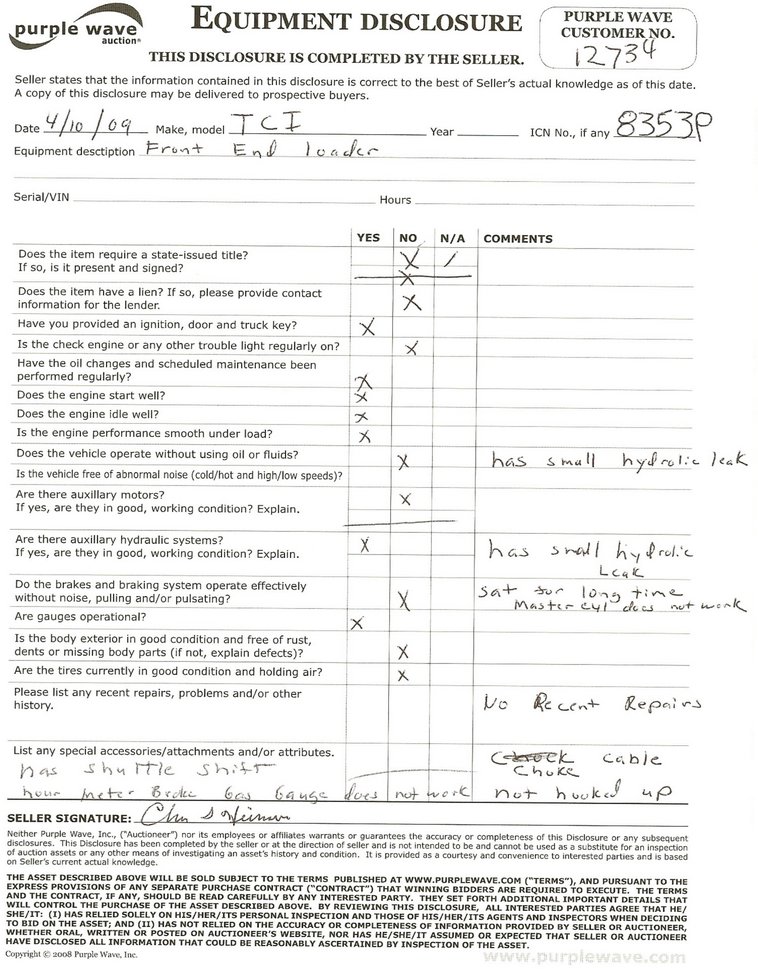 purple wave
auction®
EQUIPMENT DISCLOSURE
PURPLE WAVE
CUSTOMER NO.
12734
THIS DISCLOSURE IS COMPLETED BY THE SELLER.
Seller states that the information contained in this disclosure is correct to the best of Seller's actual knowledge as of this date.
A copy of this disclosure may be delivered to prospective buyers.
Date 4/10/09 Make, model TCI Year ICN No., if any 8353P
Equipment desctiption Front End loader
Serial/VIN Hours
YES NO N/A COMMENTS
Does the item require a state-issued title? X /
If so, is it present and signed? X
Does the item have a lien? If so, please provide contact
information for the lender. X
Have you provided an ignition, door and truck key? X
Is the check engine or any other trouble light regularly on? X
Have the oil changes and scheduled maintenance been
performed regularly? X
Does the engine start well? X
Does the engine idle well? X
Is the engine performance smooth under load? X
Does the vehicle operate without using oil or fluids? X has small hydrolic leak
Is the vehicle free of abnormal noise (cold/hot and high/low speeds)?
Are there auxillary motors? X
If yes, are they in good, working condition? Explain.
Are there auxillary hydraulic systems? X has small hydrolic
If yes, are they in good, working condition? Explain. Leak
Do the brakes and braking system operate effectively sat for long time
without noise, pulling and/or pulsating? X Master cyl does not work
Are gauges operational? X
Is the body exterior in good condition and free of rust,
dents or missing body parts (if not, explain defects)? X
Are the tires currently in good condition and holding air? X
Please list any recent repairs, problems and/or other
history. No Recent Repairs
List any special accessories/attachments and/or attributes. cable
has shuttle shift Choke
hour meter Broke Gas Gauge does not work not hooked up
SELLER SIGNATURE:
Neither Purple Wave, Inc., ("Auctioneer") nor its employees or affiliates warrants or guarantees the accuracy or completeness of this Disclosure or any subsequent
disclosures. This Disclosure has been completed by the seller or at the direction of seller and is not intended to be and cannot be used as a substitute for an inspection
of auction assets or any other means of investigating an asset's history and condition. It is provided as a courtesy and convenience to interested parties and is based
on Seller's current actual knowledge.
THE ASSET DESCRIBED ABOVE WILL BE SOLD SUBJECT TO THE TERMS PUBLISHED AT WWW.PURPLEWAVE.COM ("TERMS"), AND PURSUANT TO THE
EXPRESS PROVISIONS OF ANY SEPARATE PURCHASE CONTRACT ("CONTRACT") THAT WINNING BIDDERS ARE REQUIRED TO EXECUTE. THE TERMS
AND THE CONTRACT, IF ANY, SHOULD BE READ CAREFULLY BY ANY INTERESTED PARTY. THEY SET FORTH ADDITIONAL IMPORTANT DETAILS THAT
WILL CONTROL THE PURCHASE OF THE ASSET DESCRIBED ABOVE. BY REVIEWING THIS DISCLOSURE, ALL INTERESTED PARTIES AGREE THAT HE/
SHE/IT: (I) HAS RELIED SOLELY ON HIS/HER/ITS PERSONAL INSPECTION AND THOSE OF HIS/HER/ITS AGENTS AND INSPECTORS WHEN DECIDING
TO BID ON THE ASSET; AND (II) HAS NOT RELIED ON THE ACCURACY OR COMPLETENESS OF INFORMATION PROVIDED BY SELLER OR AUCTIONEER,
WHETHER ORAL, WRITTEN OR POSTED ON AUCTIONEER'S WEBSITE, NOR HAS HE/SHE/IT ASSUMED OR EXPECTED THAT SELLER OR AUCTIONEER
HAVE DISCLOSED ALL INFORMATION THAT COULD BE REASONABLY ASCERTAINED BY INSPECTION OF THE ASSET.
Copyright © 2008 Purple Wave, Inc.
www.purplewave.com